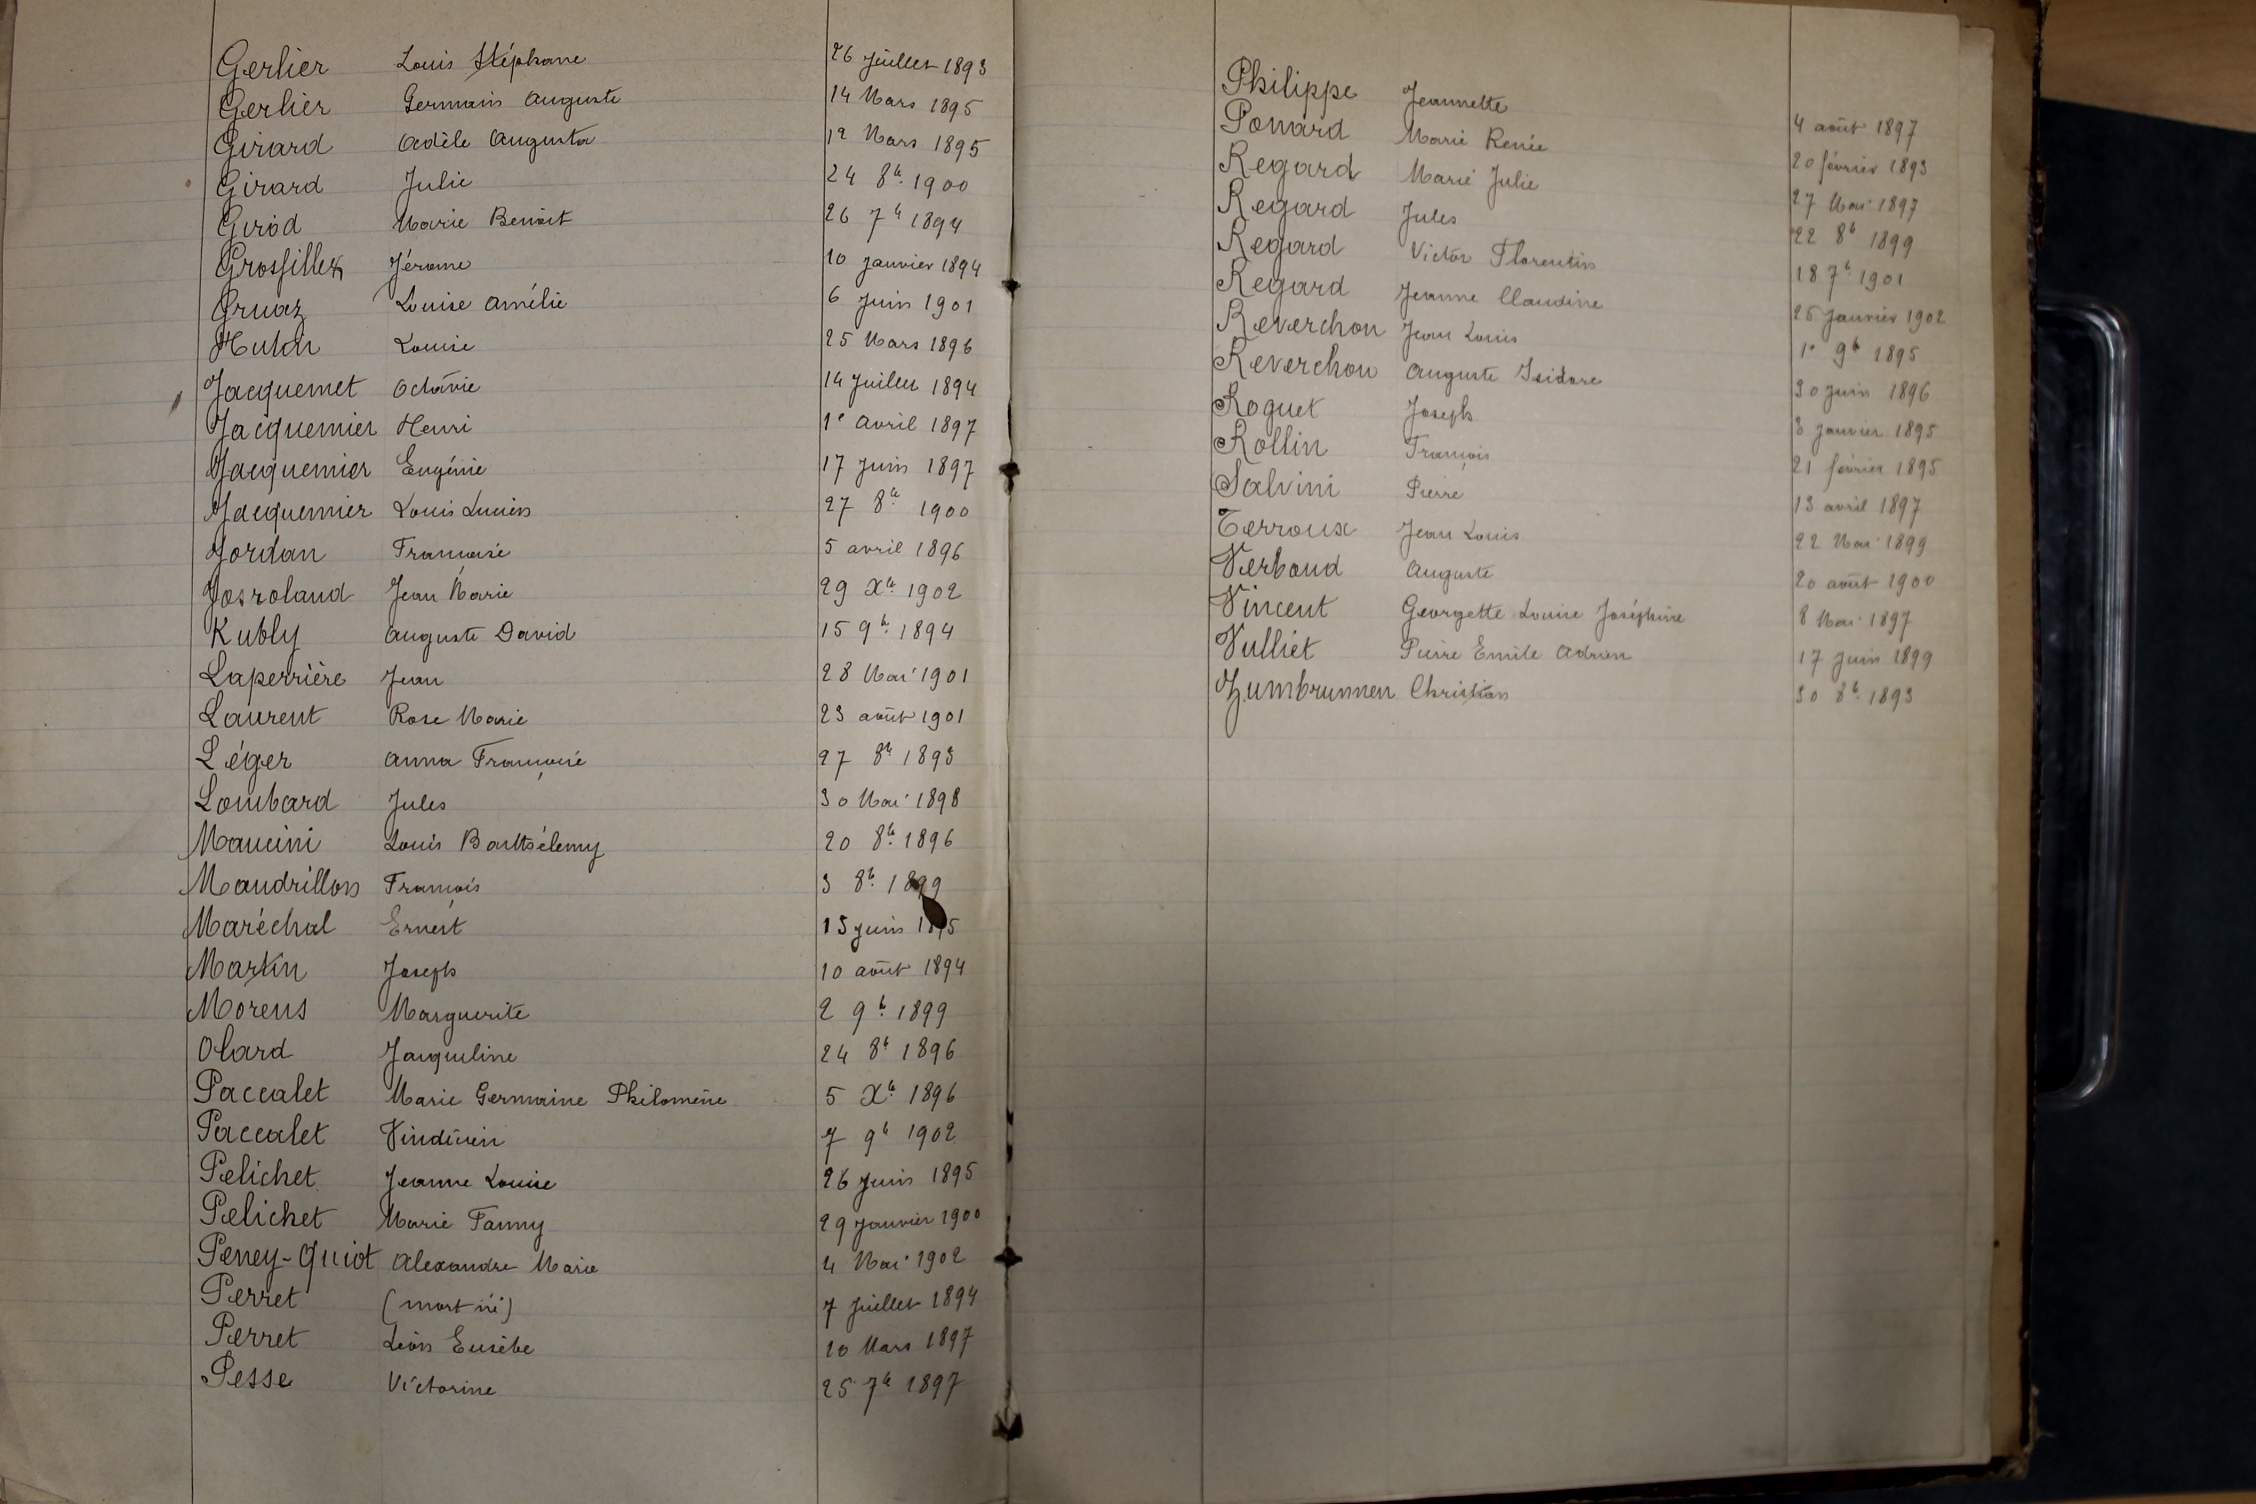 Gerlier Louis Stéphane 26 Juillet 1893
Gerlier Germain Auguste 14 Mars 1895
Girard Adèle Augusta 12 Mars 1895
Girard Julie 24 8b. 1900
Girod Marie Benoit 26 7b 1894
Grosfillex Jérome 10 Janvier 1894
Gruaz Louise Amélie 6 Juin 1901
Hutin Louise 25 Mars 1896
Jacquemet Octavie 14 Juillet 1894
Jacquemier Henri 1e Avril 1897
Jacquemier Eugénie 17 Juin 1897
Jacquemier Louis Lucien 27 8b. 1900
Jordan Françoise 5 avril 1896
Josroland Jean Marie 29 Xb. 1902
Kubly Auguste David 15 9b. 1894
Laperrière Jean 28 Mai 1901
Laurent Rose Marie 23 août 1901
Léger Anna Françoise 27 8b 1893
Lombard Jules 30 Mai 1898
Mancini Louis Barthélemy 20 8b. 1896
Mandrillon François 3 8b. 1899
Maréchal Ernest 15 Juin 1895
Martin Joseph 10 août 1894
Morens Marguerite 2 9b. 1899
Olard Jacqueline 24 8b 1896
Paccalet Marie Germaine Philomène 5 Xb. 1896
Paccalet 7 9b 1902
Pelichet Jeanne Louise 26 Juin 1895
Pelichet Marie Fanny 29 Janvier 1900
Peney-Guiot Alexandre Marie 4 Mai 1902
Perret (mort né) 7 Juillet 1894
Perret Léon Eusèbe 10 Mars 1897
Pesse Victorine 25 7b 1897
Philippe Jeannette 4 août 1897
Ponard Marie Renée 20 février 1893
Regard Marie Julie 27 Mai 1897
Regard Jules 22 8b 1899
Regard Victor Florentin 18 7b. 1901
Regard Jeanne Claudine 25 Janvier 1902
Reverchon Jean Louis 1e 9b 1895
Reverchon Auguste Isidore 30 Juin 1896
Roguet Joseph 3 Janvier 1895
Rollin François 21 février 1895
Salvini Pierre 13 avril 1897
Terroux Jean Louis 22 Mai 1899
Verbaud Auguste 20 août 1900
Vincent Georgette Louise Joséphine 8 Mai 1897
Vulliet Pierre Emile Adrien 17 Juin 1899
Zumbrunnen Christian 30 8b. 1893